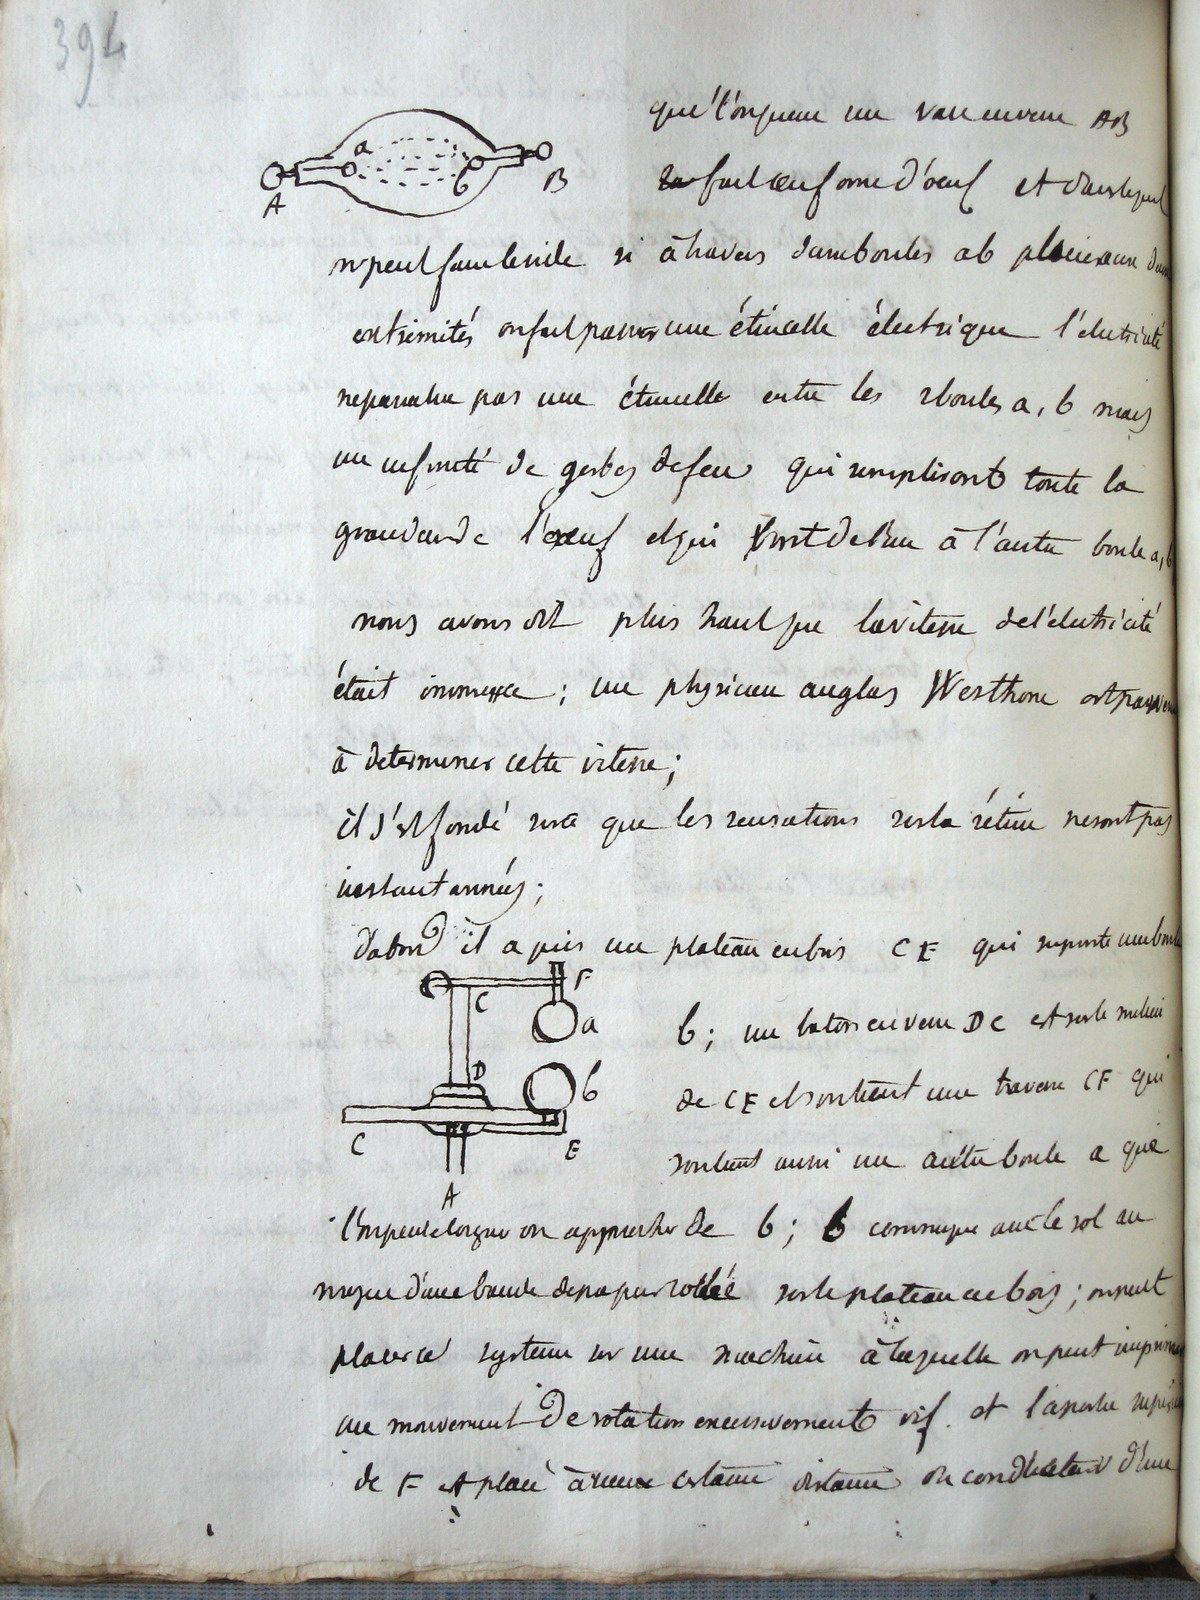 394
que l'on prenne un vase en verre AB
fait en forme d'oeuf et dans lequel
on peut faire le vide si à travers deux boules ab placées aux deux
extrimités on fait passer une étincelle électrique l'électricité
ne paraitra pas une étincelle entre les 2 boules a, b mais
une infinité de gerbes de feu qui rempliront toute la
grandeur de l'oeuf et qui iront de l'une à l'autre boule a, b
nous avons dit plus haut que la vitesse de l'électricité
était immense ; un physicien anglas Westhone est parvenu
à determiner cette vitesse ;
il s'est fondé sur ce que les sensations sur la rétine ne sont pas
instantannées ;
d'abord il a pris un plateau en bois C E qui suporte une boule
b ; un baton en verre D C est sur le milieu
de C E et soutient une traverse C F qui
soutient aussi une autre boule a que
l'on peut eloigner ou approcher de b ; b commuque avec le sol au
moyen d'une bande de papier collée sur le plateau en bois ; on peut
placer ce systeme sur une machine à laquelle on peut imprimer
un mouvement de rotation excessivement vif. et la partie
de F est placé à une certaine distance du conducteur d'une
A
a
b
B
F
C
a
D
b
C
E
A